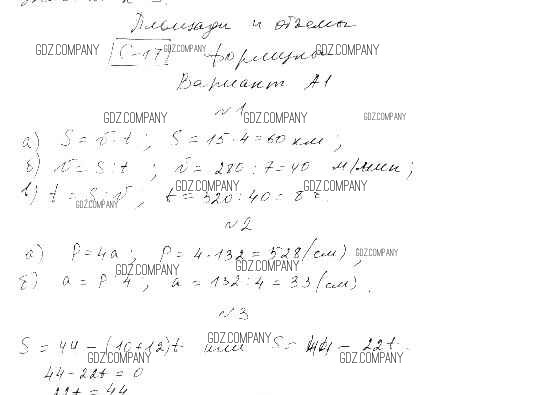 Площади и объемы
GDZ.COMPANY С-17 GDZ.COMPANY формулы GDZ.COMPANY
Вариант А1
№1
GDZ.COMPANY GDZ.COMPANY GDZ.COMPANY
а) S = v · t ; S = 15 · 4 = 60 км ;
б) v = S : t ; v = 280 : 7 = 40 м/мин ;
GDZ.COMPANY GDZ.COMPANY
в) t = S : v ; t = 320 : 40 = 8 г.
GDZ.COMPANY
№2
а) P = 4a ; P = 4 · 132 = 528 (см) ; GDZ.COMPANY
GDZ.COMPANY GDZ.COMPANY
б) a = P 4 ; a = 132 : 4 = 33 (см) .
№3
GDZ.COMPANY
S = 44 - (10+12)t или S = 44 - 22t
GDZ.COMPANY GDZ.COMPANY
44 - 22t = 0
22t = 44